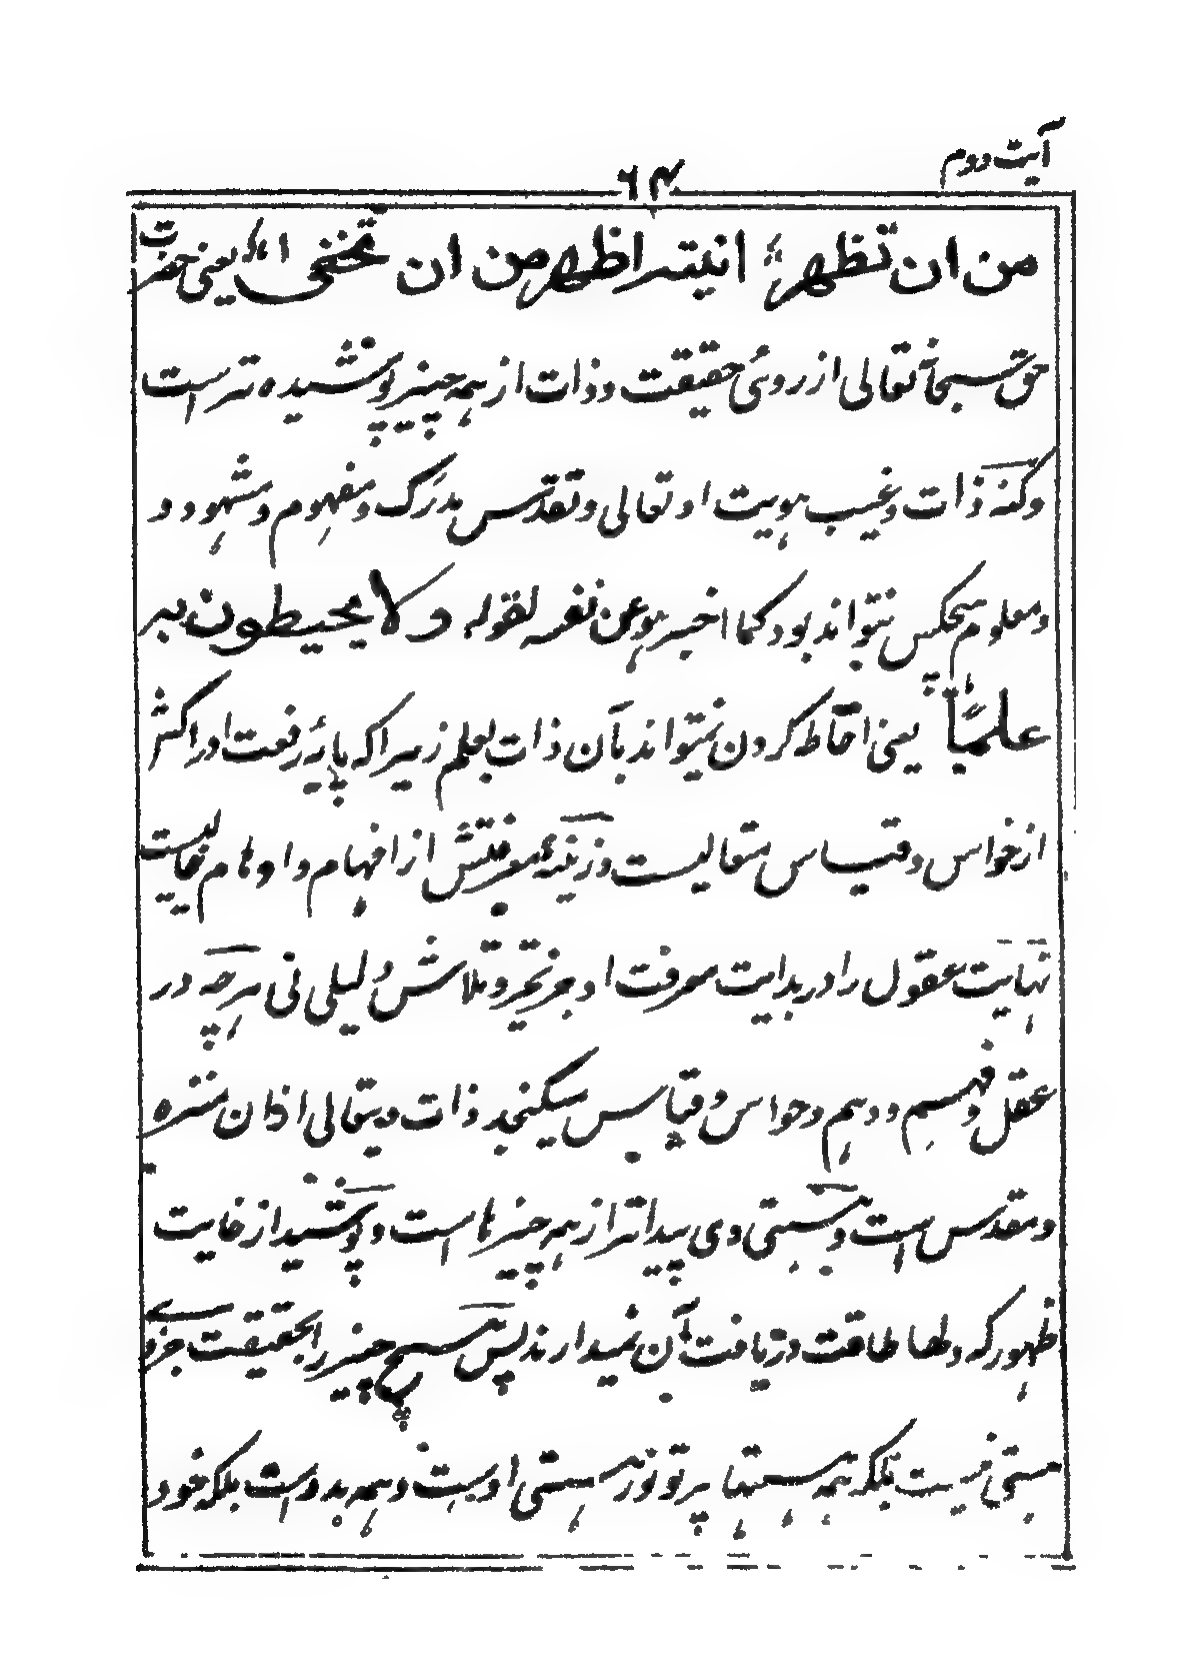 آیت دوم
۶۴
من ان تظهر انیته اظهر من ان تخفی یعنی حضرت
حق سبحانه تعالی از روئی حقیقت و ذات از همه چیز پوشیده ترست
و کنه ذات و غیب هویت او تعالی و تقدس مدرک و مفهوم و مشهود و
و معلوم هیچکس نتواند بود کما اخبر هو عن نفسه لقوله ولا یحیطون به
علما یعنی احاطه کردن نمیتواند بآن ذات بعلم زیراکه پایهٔ رفعت ادراکش
از حواس و قیاس متعالیست و زینهٔ معرفتش از افهام و اوهام خالیست
نهایت عقول را در بدایت معرفت او جز تحیر و تلاش دلیلی نی هرچه در
عقل و فهم و وهم و حواس و قیاس میگنجد ذات متعالی ازان منزه
و مقدس است و هستی وی پیداتر از همه چیزهاست و پوشید از غایت
ظهور که دلها طاقت دریافت آن نمیدارند پس هیچ چیز را بحقیقت جز وی
هستی نیست بلکه همه هستیها پرتو نور هستی اوست و همه بدوست بلکه خود